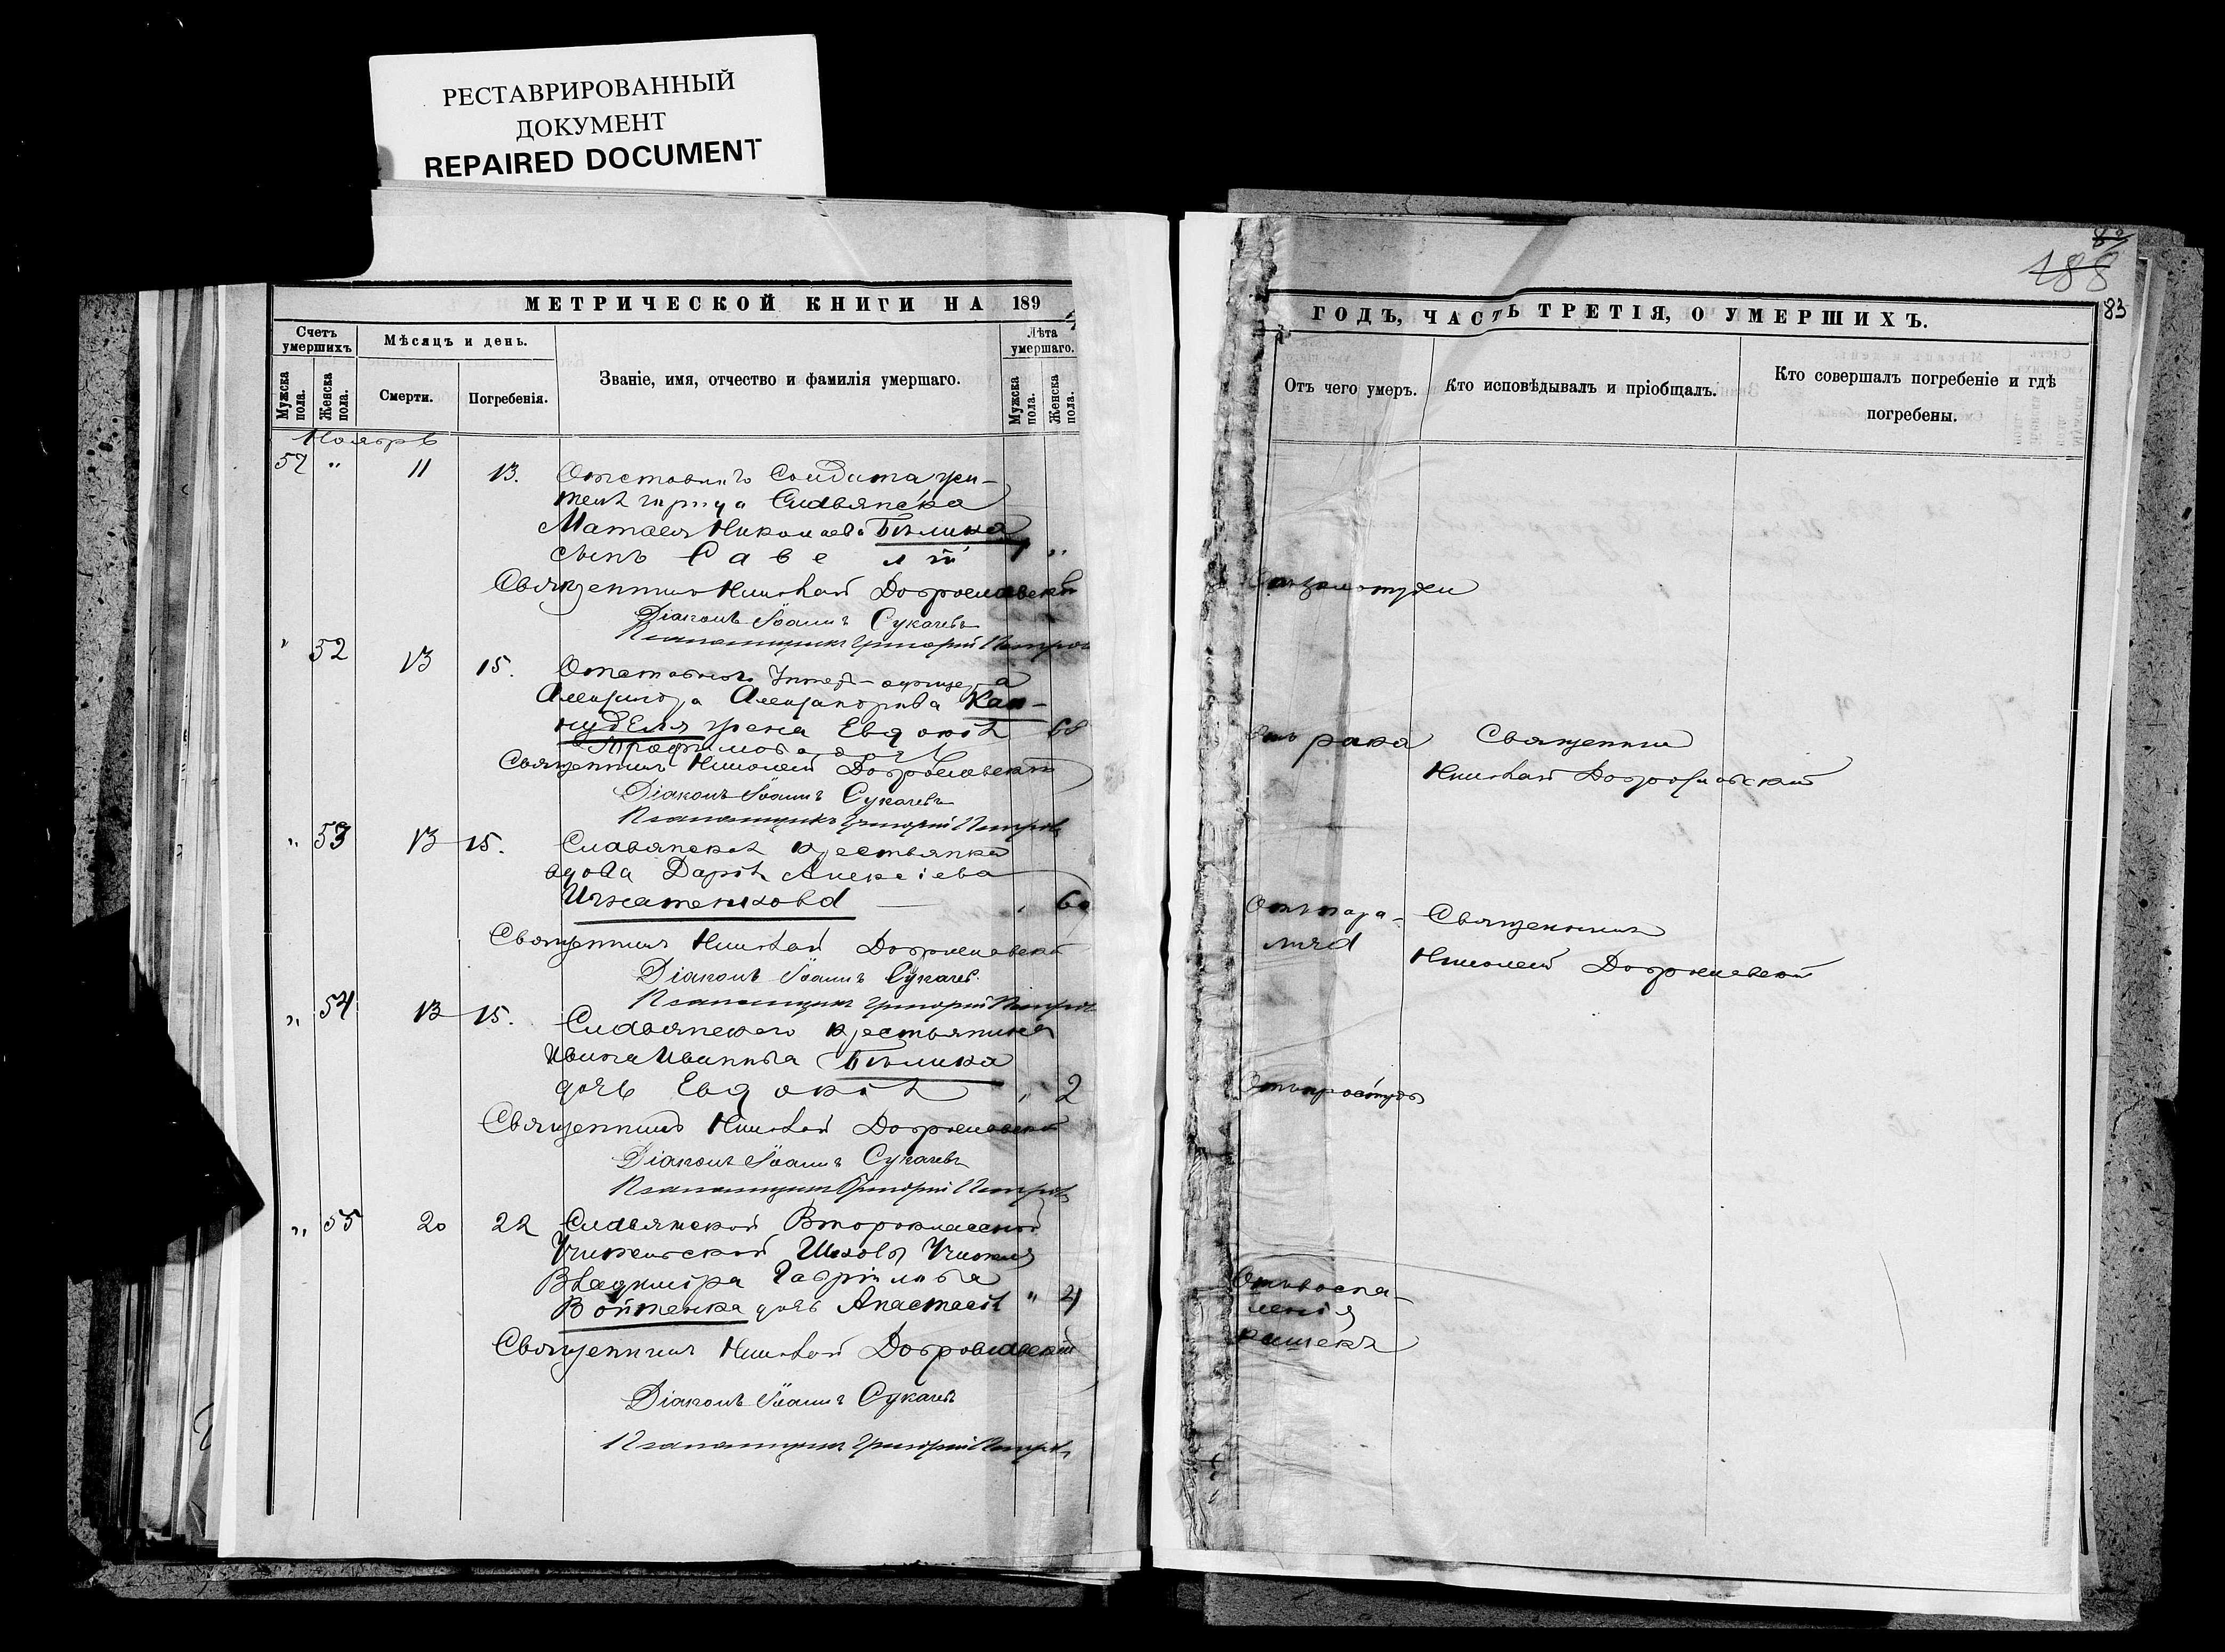 РЕСТАВРИРОВАННЫЙ
ДОКУМЕНТ
REPAIRED DOCUMENT
МЕТРИЧЕСКОЙ КНИГИ НА 189
Счетъ умершихъ
Мѣсяцъ и день.
Званіе, имя, отчество и фамилія умершаго.
Лѣта умершаго.
Мужска пола.
Женска пола.
Смерти.
Погребенія.
Мужска пола.
Женска пола.
Ноябрь
57 " 11 13. Отставнаго Солдата жи-
теля города Славянска
Матвея Николаева Бѣлика
сынъ Савелій 1 "
Священникъ Николай Доброславскій
Діаконъ Іоаннъ Сукачевъ
Псаломщикъ Григорій Петровъ
" 52 13 15. Отставного Унтер-офицера
Александра Александрова Кан-
жена Евдокія 68
Трофимова
Священникъ Николай Доброславскій
Діаконъ Іоаннъ Сукачевъ
Псаломщикъ Григорій Петровъ
" 53 13 15. Славянская крестьянка
вдова Дарія Алексіева
Игнатенкова " 60
Священникъ Николай Доброславскій
Діаконъ Іоаннъ Сукачевъ
Псаломщикъ Григорій Петровъ
" 54 13 15. Славянскаго крестьянина
Ивана Иванова Бѣлика
дочь Евдокія " 2
Священникъ Николай Доброславскій
Діаконъ Іоаннъ Сукачевъ
Псаломщикъ Григорій Петровъ
" 55 20 22 Славянской Второклассной
Учительской Школы Учителя
Владимира Гавріилова
Войтенка дочь Анастасія " 4
Священникъ Николай Доброславскій
Діаконъ Іоаннъ Сукачевъ
Псаломщикъ Григорій Петровъ
188
83
ГОДЪ, ЧАСТЬ ТРЕТІЯ, О УМЕРШИХЪ.
Отъ чего умеръ.
Кто исповѣдывалъ и пріобщалъ.
Кто совершалъ погребеніе и гдѣ
погребены.
Отъ золотухи
Отъ рака Священникъ
Николай Доброславскій
Отъ пара- Священникъ
лича
Николай Доброславскій
Отъ простуды
Отъ воспа-
ленія
кишекъ